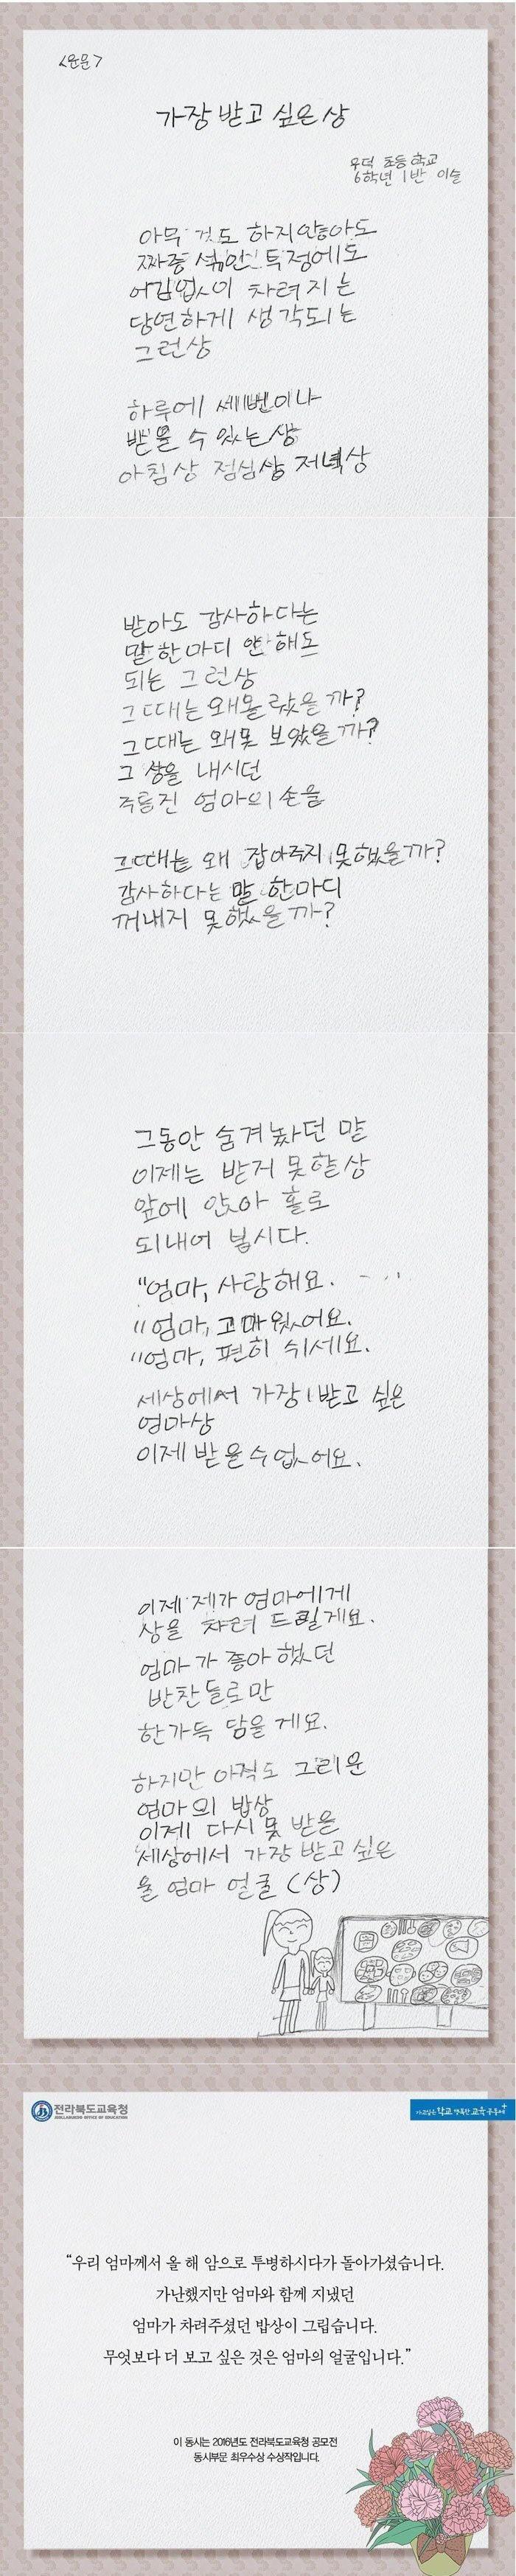 <운문>
가장 받고 싶은 상
우덕 초등학교
6학년 1반 이슬
아무 것도 하지않아도
짜증 섞인 투정에도
어김없이 차려지는
당연하게 생각되는
그런상
하루에 세번이나
받을 수 있는 상
아침상 점심상 저녁상
받아도 감사하다는
말 한마디 안 해도
되는 그런상
그때는 왜몰랐을까?
그때는 왜못 보았을까?
그 상을 내시던
주름진 엄마의 손을
그때는 왜 잡아주지 못했을까?
감사하다는 말 한마디
꺼내지 못했을까?
그동안 숨겨놨던 말
이제는 받지 못할상
앞에 앉아 홀로
되내어 봅시다.
"엄마, 사랑해요. ....
"엄마, 고마웠어요.
"엄마, 편히 쉬세요.
세상에서 가장 받고 싶은
엄마상
이제받을수없어요.
이제 제가 엄마에게
상을 차려 드릴게요.
엄마가 좋아했던
반찬들로만
한가득 담을게요.
하지만 아직도 그리운
엄마의 밥상
이제 다시 못 받을
세상에서 가장 받고 싶은
울 엄마 얼굴 (상)
전라북도교육청
JEOLLABUKDO OFFICE OF EDUCATION
가고싶은 학교 행복한 교육공동체
"우리 엄마께서 올 해 암으로 투병하시다가 돌아가셨습니다.
가난했지만 엄마와 함께 지냈던
엄마가 차려주셨던 밥상이 그립습니다.
무엇보다 더 보고 싶은 것은 엄마의 얼굴입니다."
이 동시는 2016년도 전라북도교육청 공모전
동시부문 최우수상 수상작입니다.